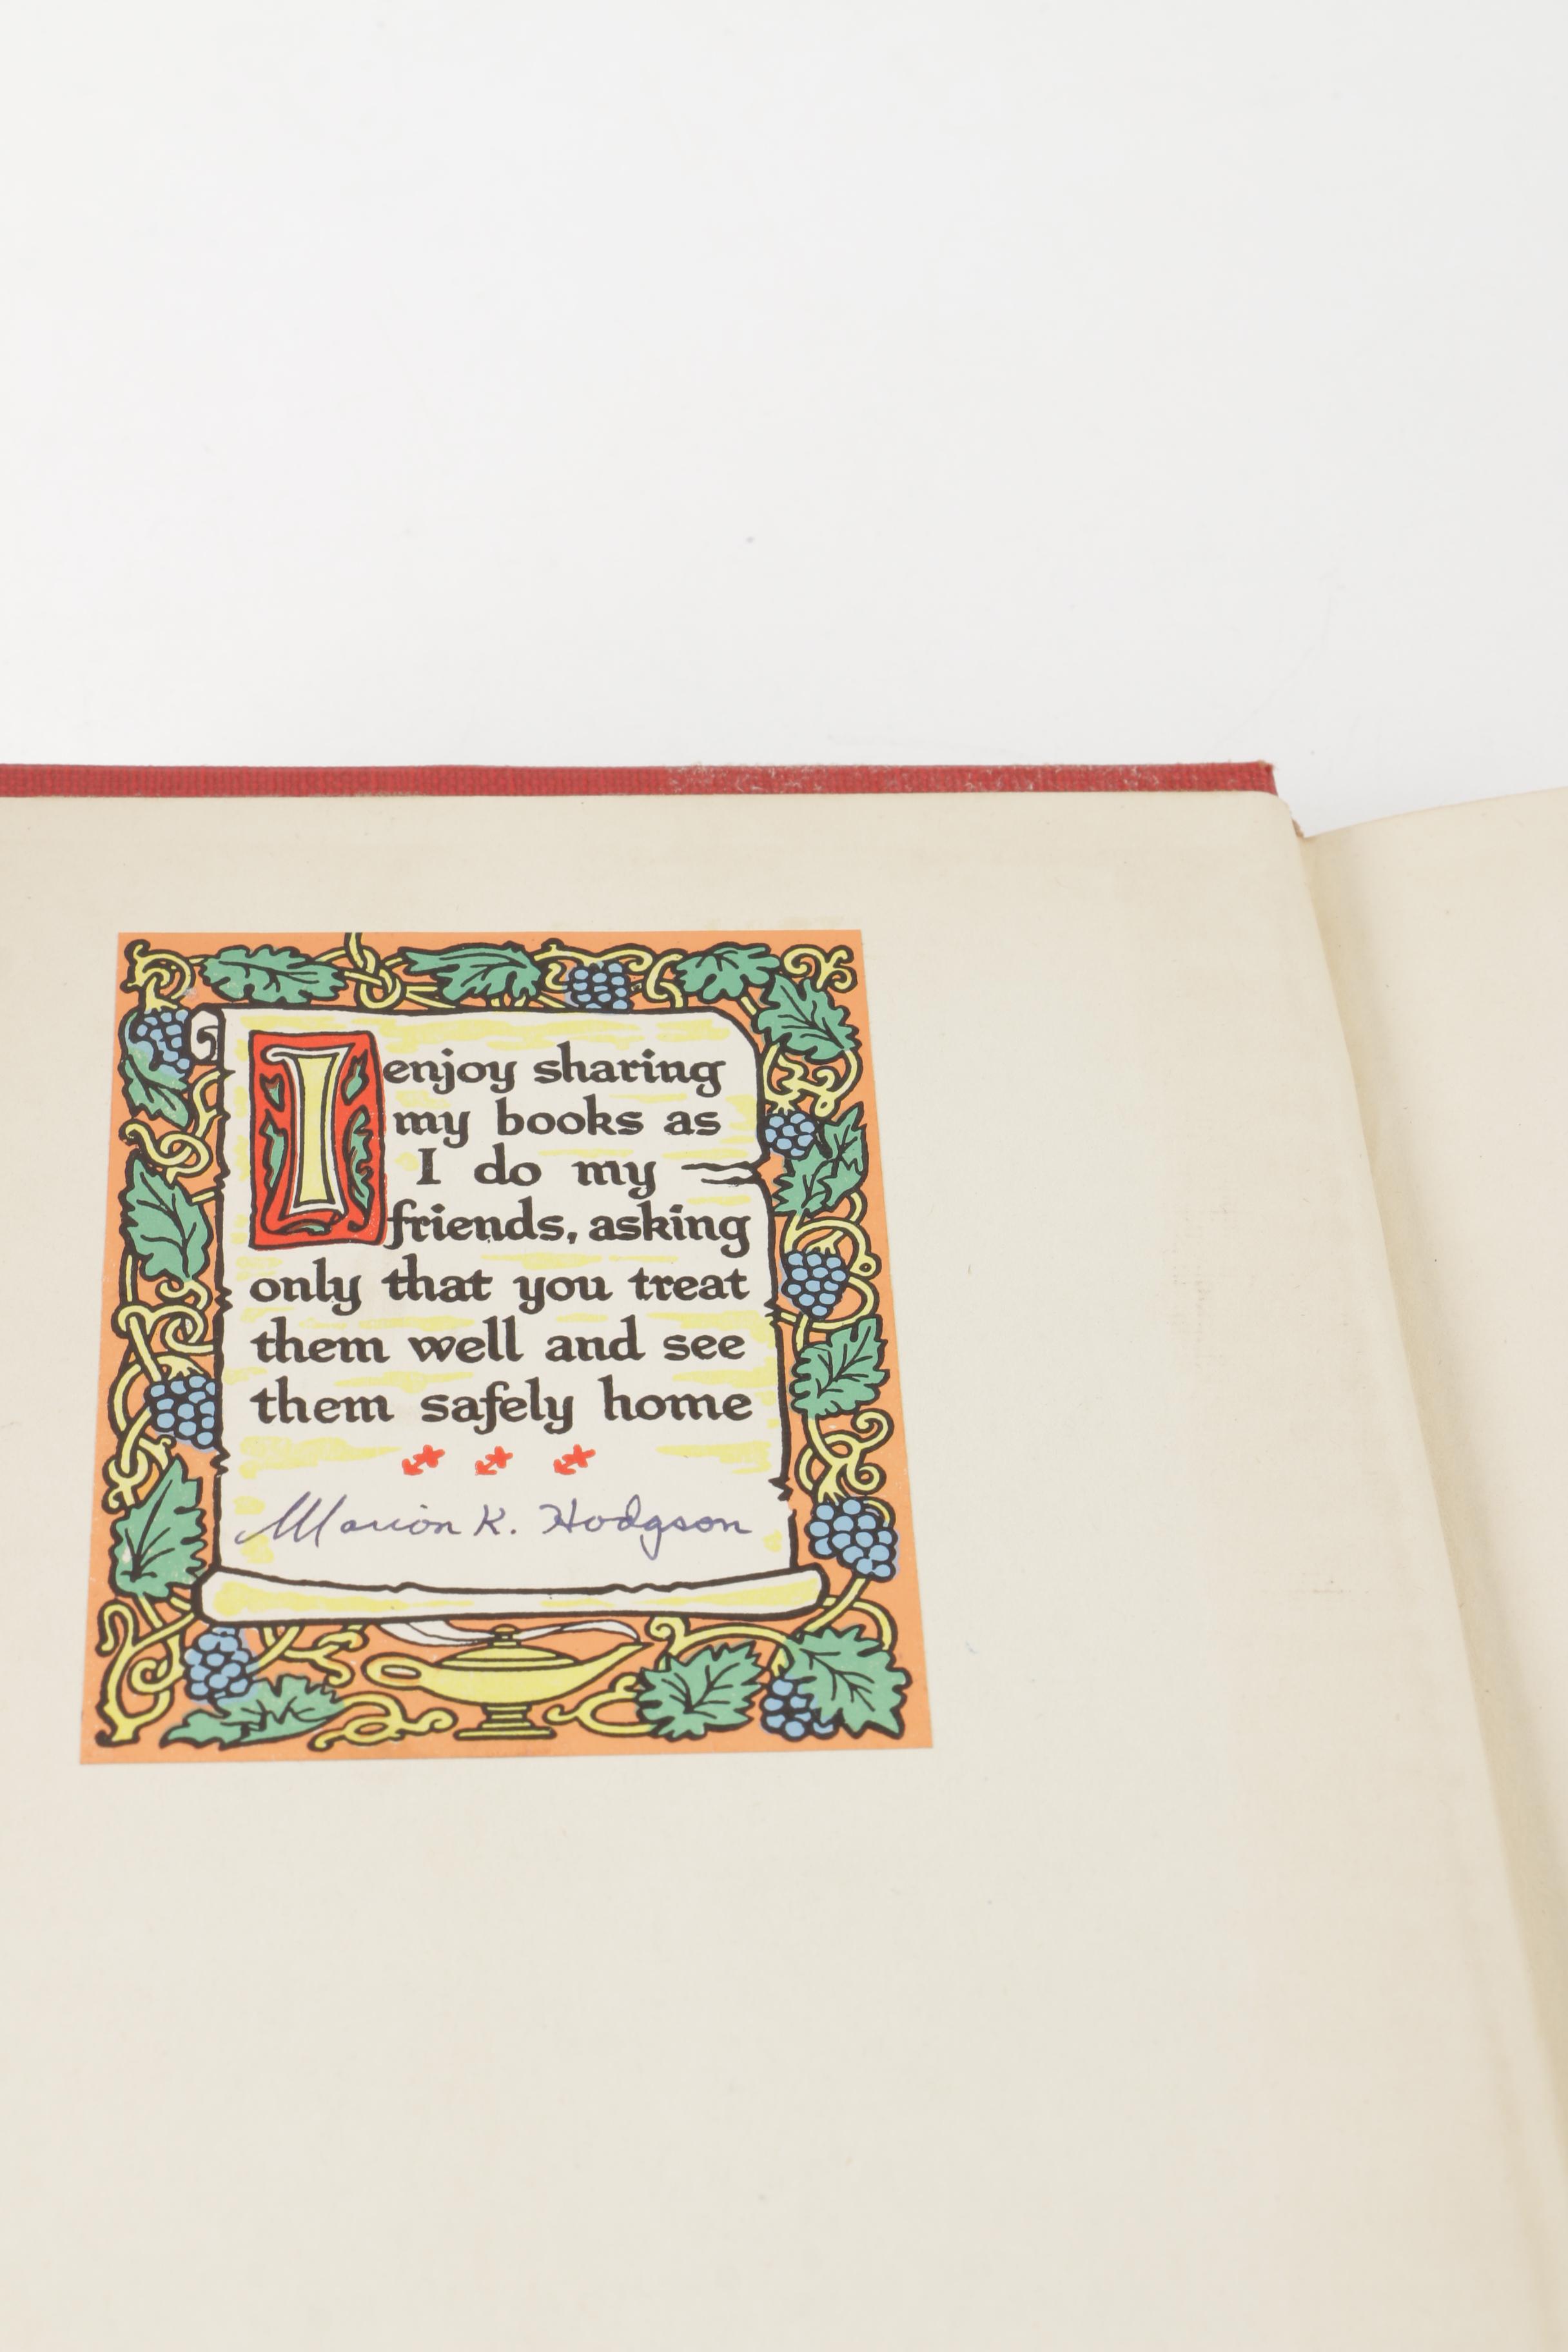 I enjoy sharing
my books as
I do my
friends, asking
only that you treat
them well and see
them safely home
Marion K. Hodgson